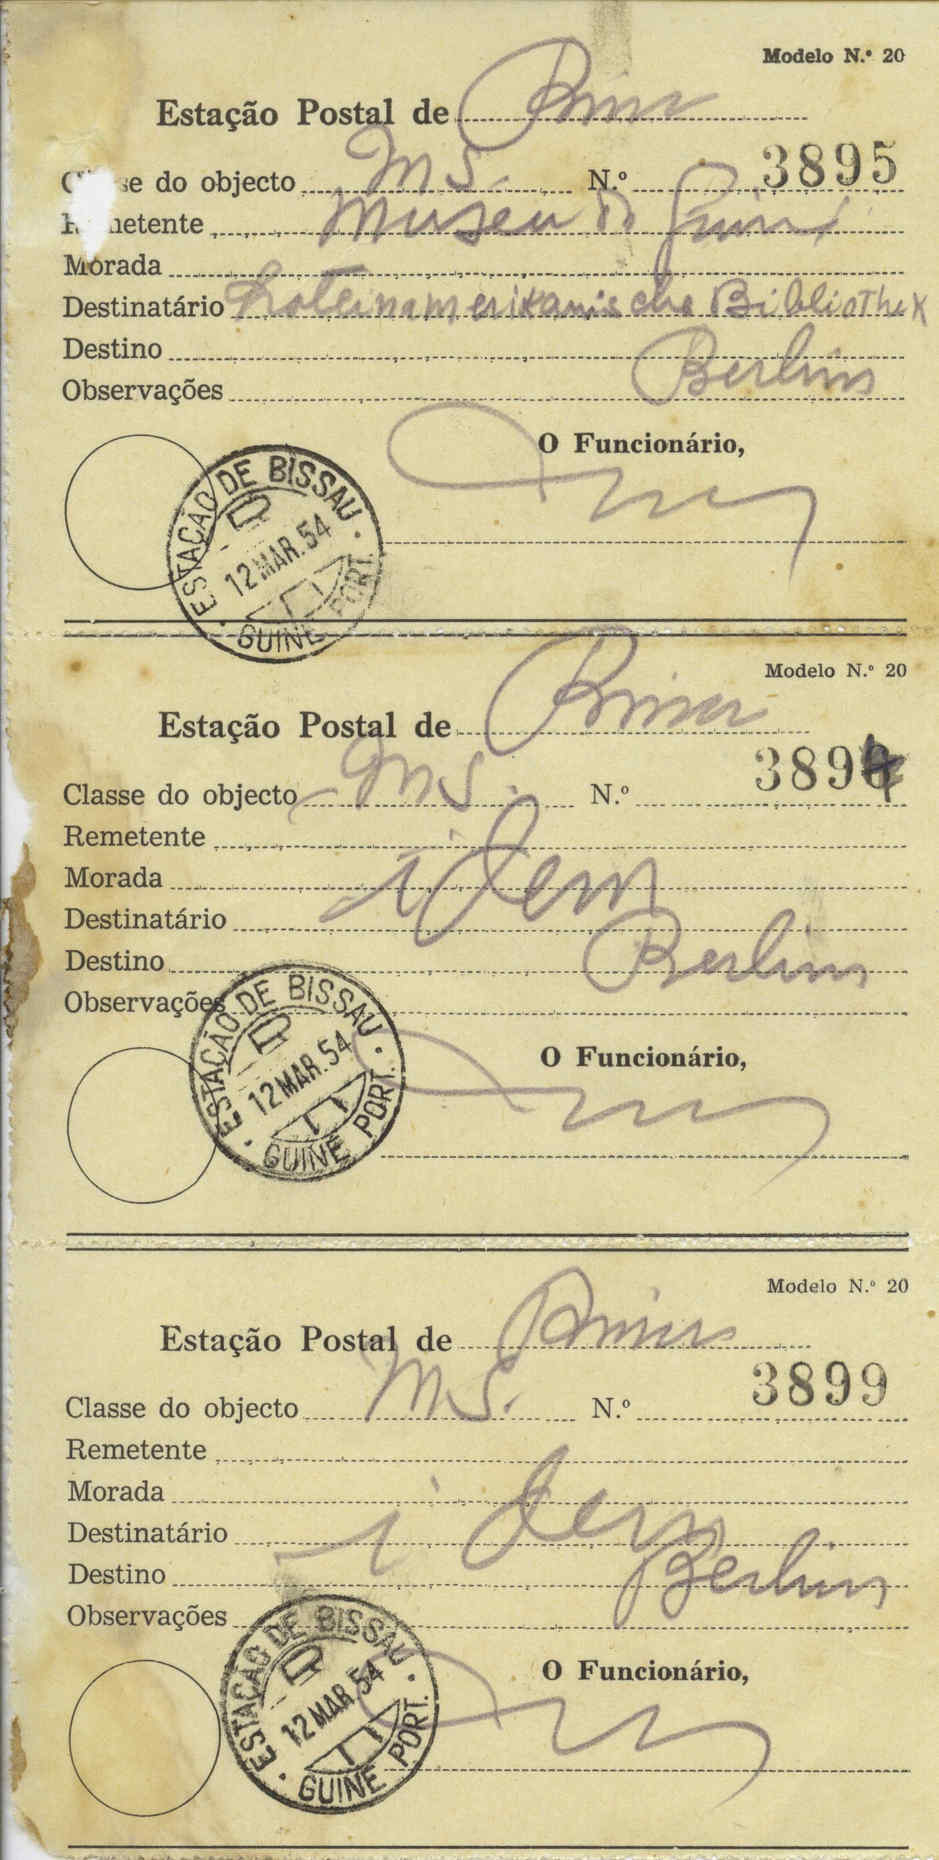 Modelo N.º 20
Estação Postal de
Classe do objecto MS. N.º 3895
Remetente Museu da Guiné
Morada
Destinatário Lateinamerikanische Bibliothek
Destino
Observações Berlim
O Funcionário,
ESTAÇÃO DE BISSAU
12 MAR. 54
GUINÉ PORT.
Modelo N.º 20
Estação Postal de
Classe do objecto MS. N.º 3894
Remetente
Morada idem
Destinatário
Destino Berlim
Observações
O Funcionário,
ESTAÇÃO DE BISSAU
12 MAR. 54
GUINÉ PORT.
Modelo N.º 20
Estação Postal de
Classe do objecto MS. N.º 3899
Remetente
Morada
Destinatário idem
Destino Berlim
Observações
O Funcionário,
ESTAÇÃO DE BISSAU
12 MAR. 54
GUINÉ PORT.